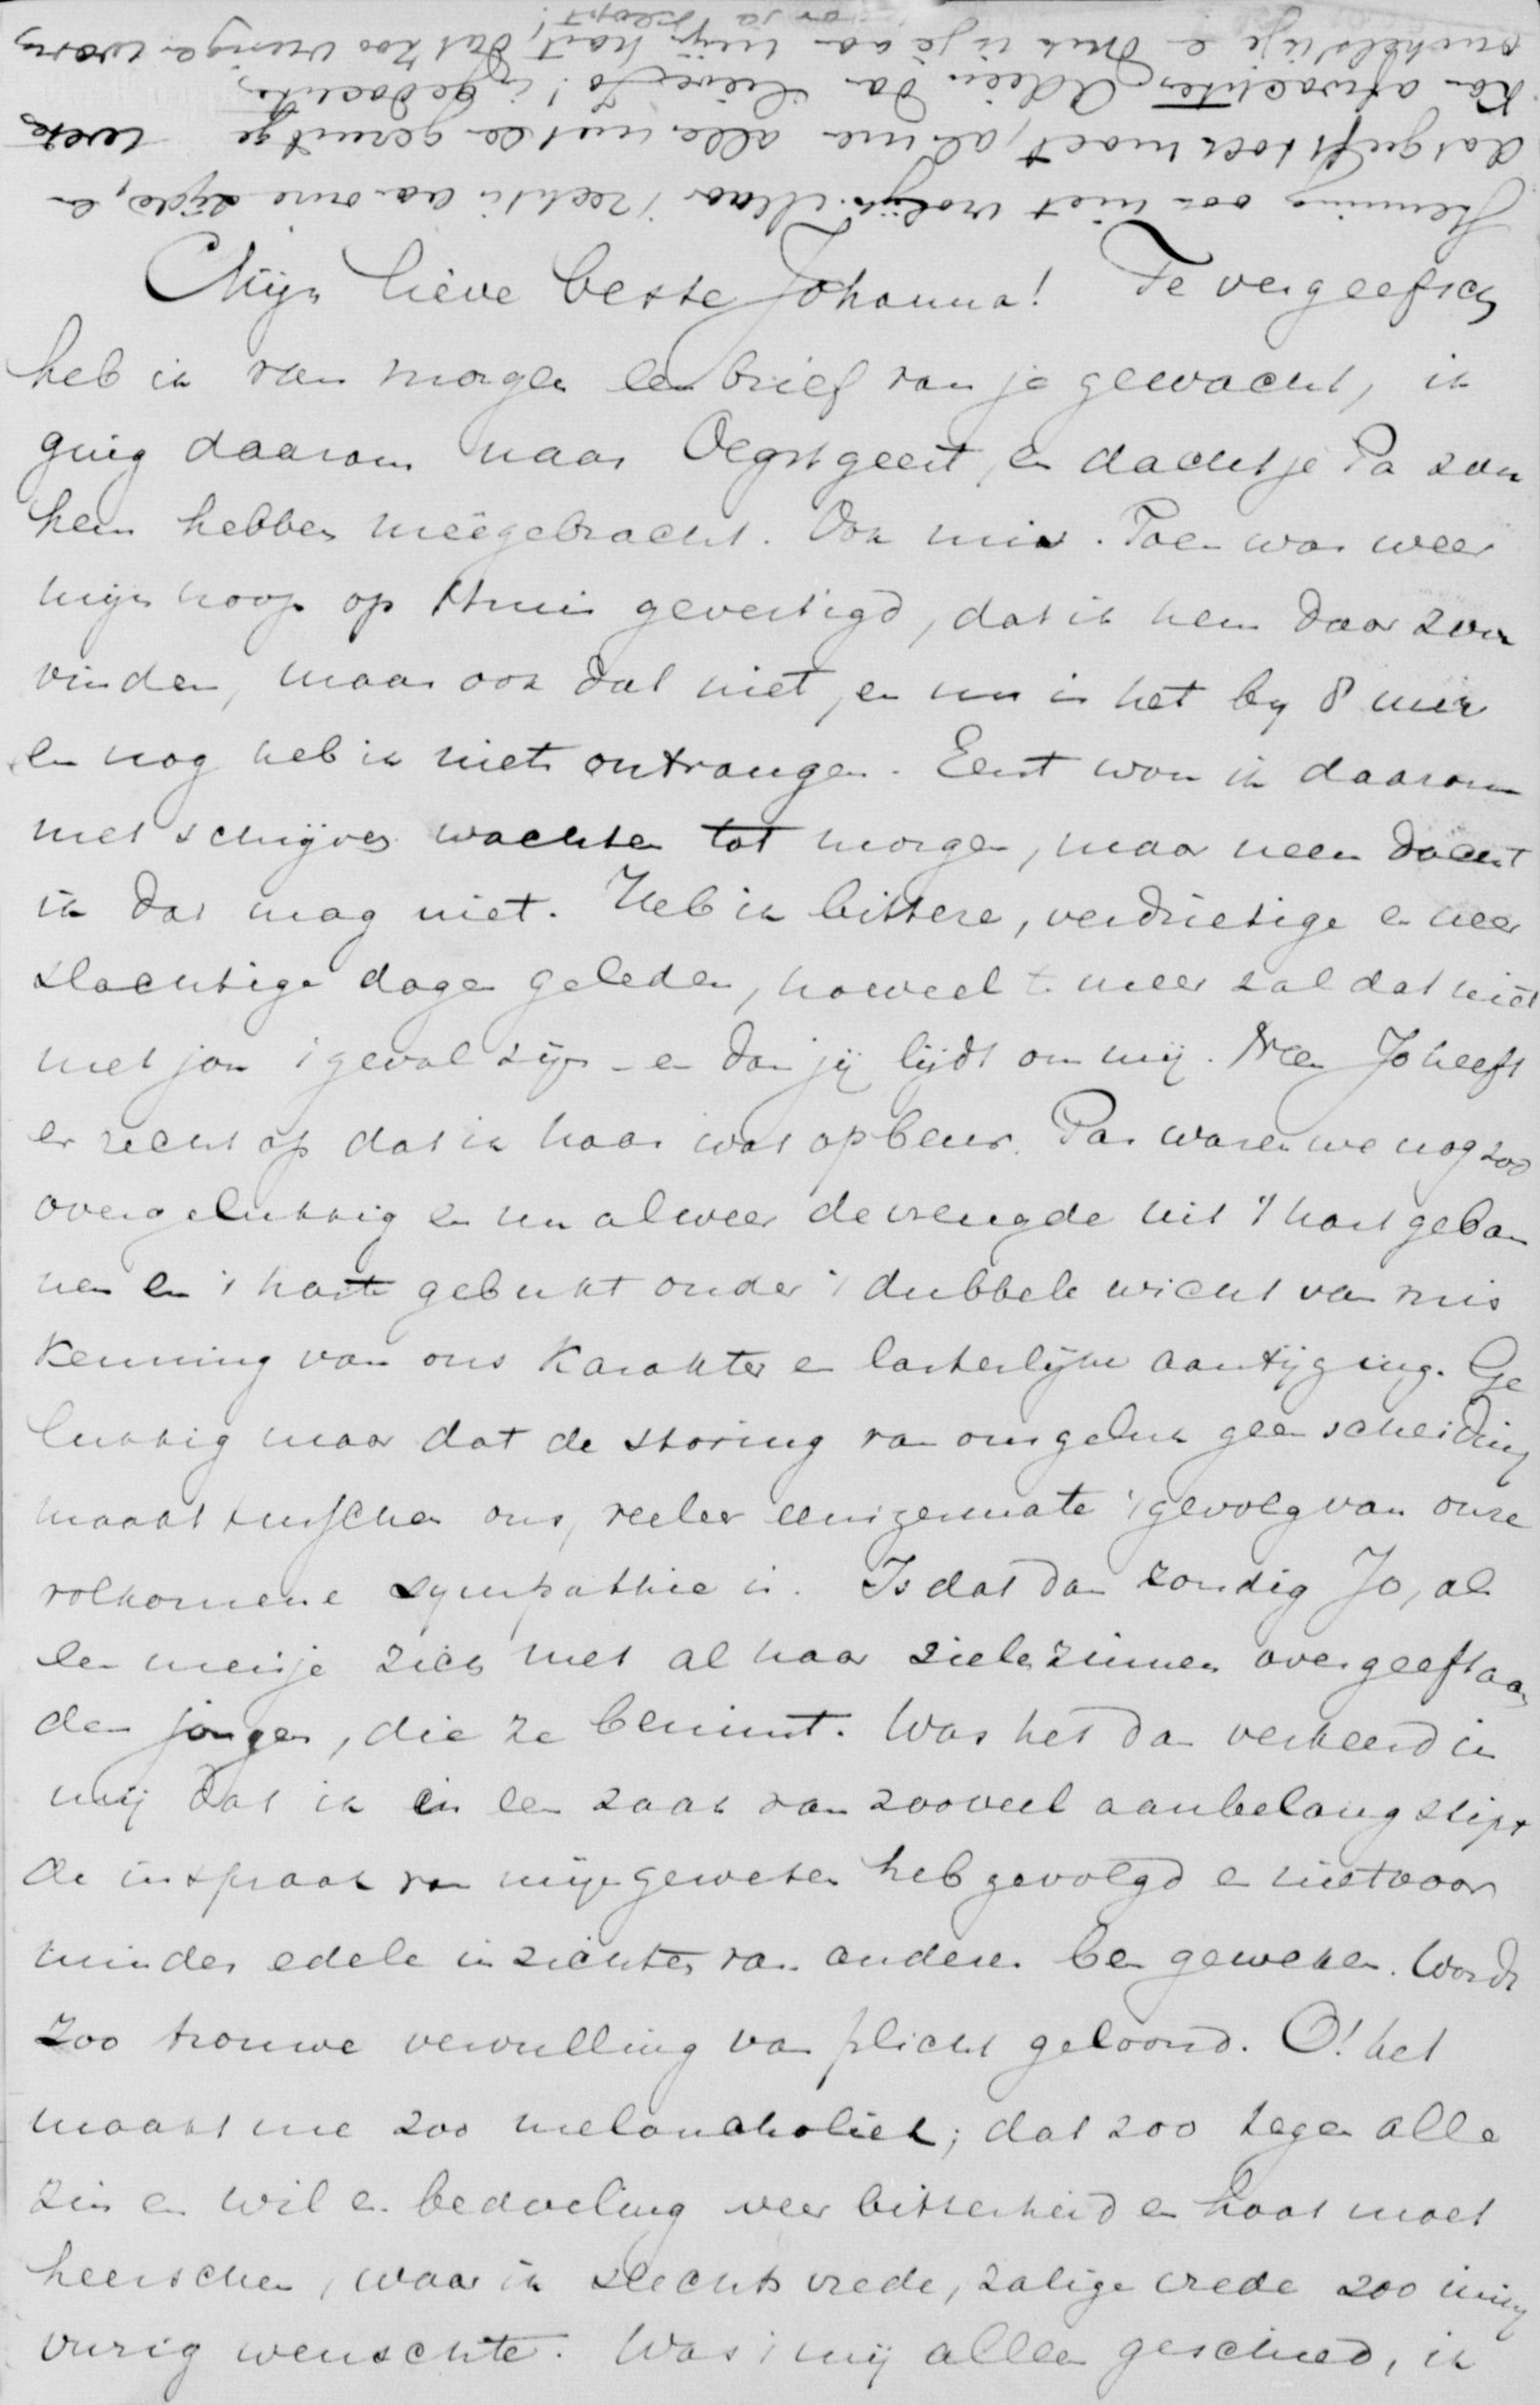 Mijn lieve beste Johanna! Te vergeefsch
heb ik van morgen een brief van je gewacht, ik
ging daarom naar Oegstgeest, en dacht je Pa zou
hem hebben meêgebracht. Ook mis. Toen was weer
mijn hoop op thuis gevestigd, dat ik hem daar zou
vinden, maar ook dat niet, en nu is het by 8 uur
en nog heb ik niets ontvangen. Eerst wou ik daarom
met schrijven wachten tot morgen, maar neen dacht
ik dat mag niet. Heb ik bittere, verdrietige en neer
slachtige dagen geleden, hoeveel te meer zal dat niet
met jou 't geval zijn - en dan jij lijdt om mij. Neen Jo heeft
er recht op dat ik haar wat opbeur. Pas waren we nog zoo
overgelukkig en nu alweer de vreugde uit 't hart geban
nen en 't hart gebukt onder 't dubbele wicht van mis
kenning van ons karakter en lasterlijke aantijging. Ge
lukkig maar dat de storing van ons geluk geen scheiding
maakt tusschen ons, veeleer eenigermate 't gevolg van onze
volkomene sympathie is. Is dat dan zondig Jo, als
een meisje zich met al haar ziel en zinnen overgeeft aan
den jongen, die ze bemint. Was het dan verkeerd in
mij dat ik in een zaak van zooveel aanbelang stipt
de inspraak van mijn geweten heb gevolgd en niet voor
minder edele inzichten van anderen ben geweken. Wordt
zoo trouwe vervulling van plicht geloond. O! het
maakt me zoo melancholiek; dat zoo tegen alle
zin en wil en bedoeling weer bitterheid en haat moet
heerschen, waar ik slechts vrede, zalige vrede zoo innig
vurig wenschte. Was 't mij alleen geschied, ik
stemming ook niet vroolijk. Maar 't recht is aan onze zijde, en
dat geeft toch moet, als men alles met een gerust ge weten
kan afwachten. Adieu dan lieve Jo! in gedachten
omhelst ik je en druk ik je aan mijn hart, dat zoo vurig en warm
voor je klopt!